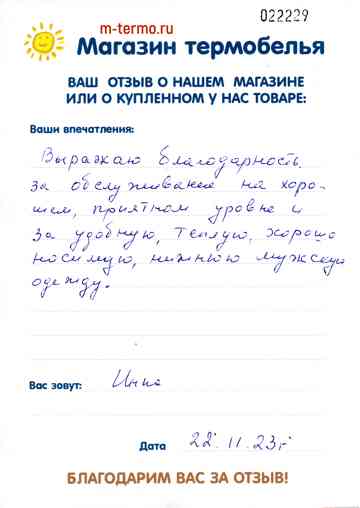 m-termo.ru
022229
Магазин термобелья
ВАШ ОТЗЫВ О НАШЕМ МАГАЗИНЕ
ИЛИ О КУПЛЕННОМ У НАС ТОВАРЕ:
Ваши впечатления:
Выражаю благодарность
за обслуживание на хоро-
шем, приятном уровне и
за удобную, теплую, хорошо
носимую, нижнюю мужскую
одежду.
Вас зовут: Инна
Дата 22.11.23г
БЛАГОДАРИМ ВАС ЗА ОТЗЫВ!